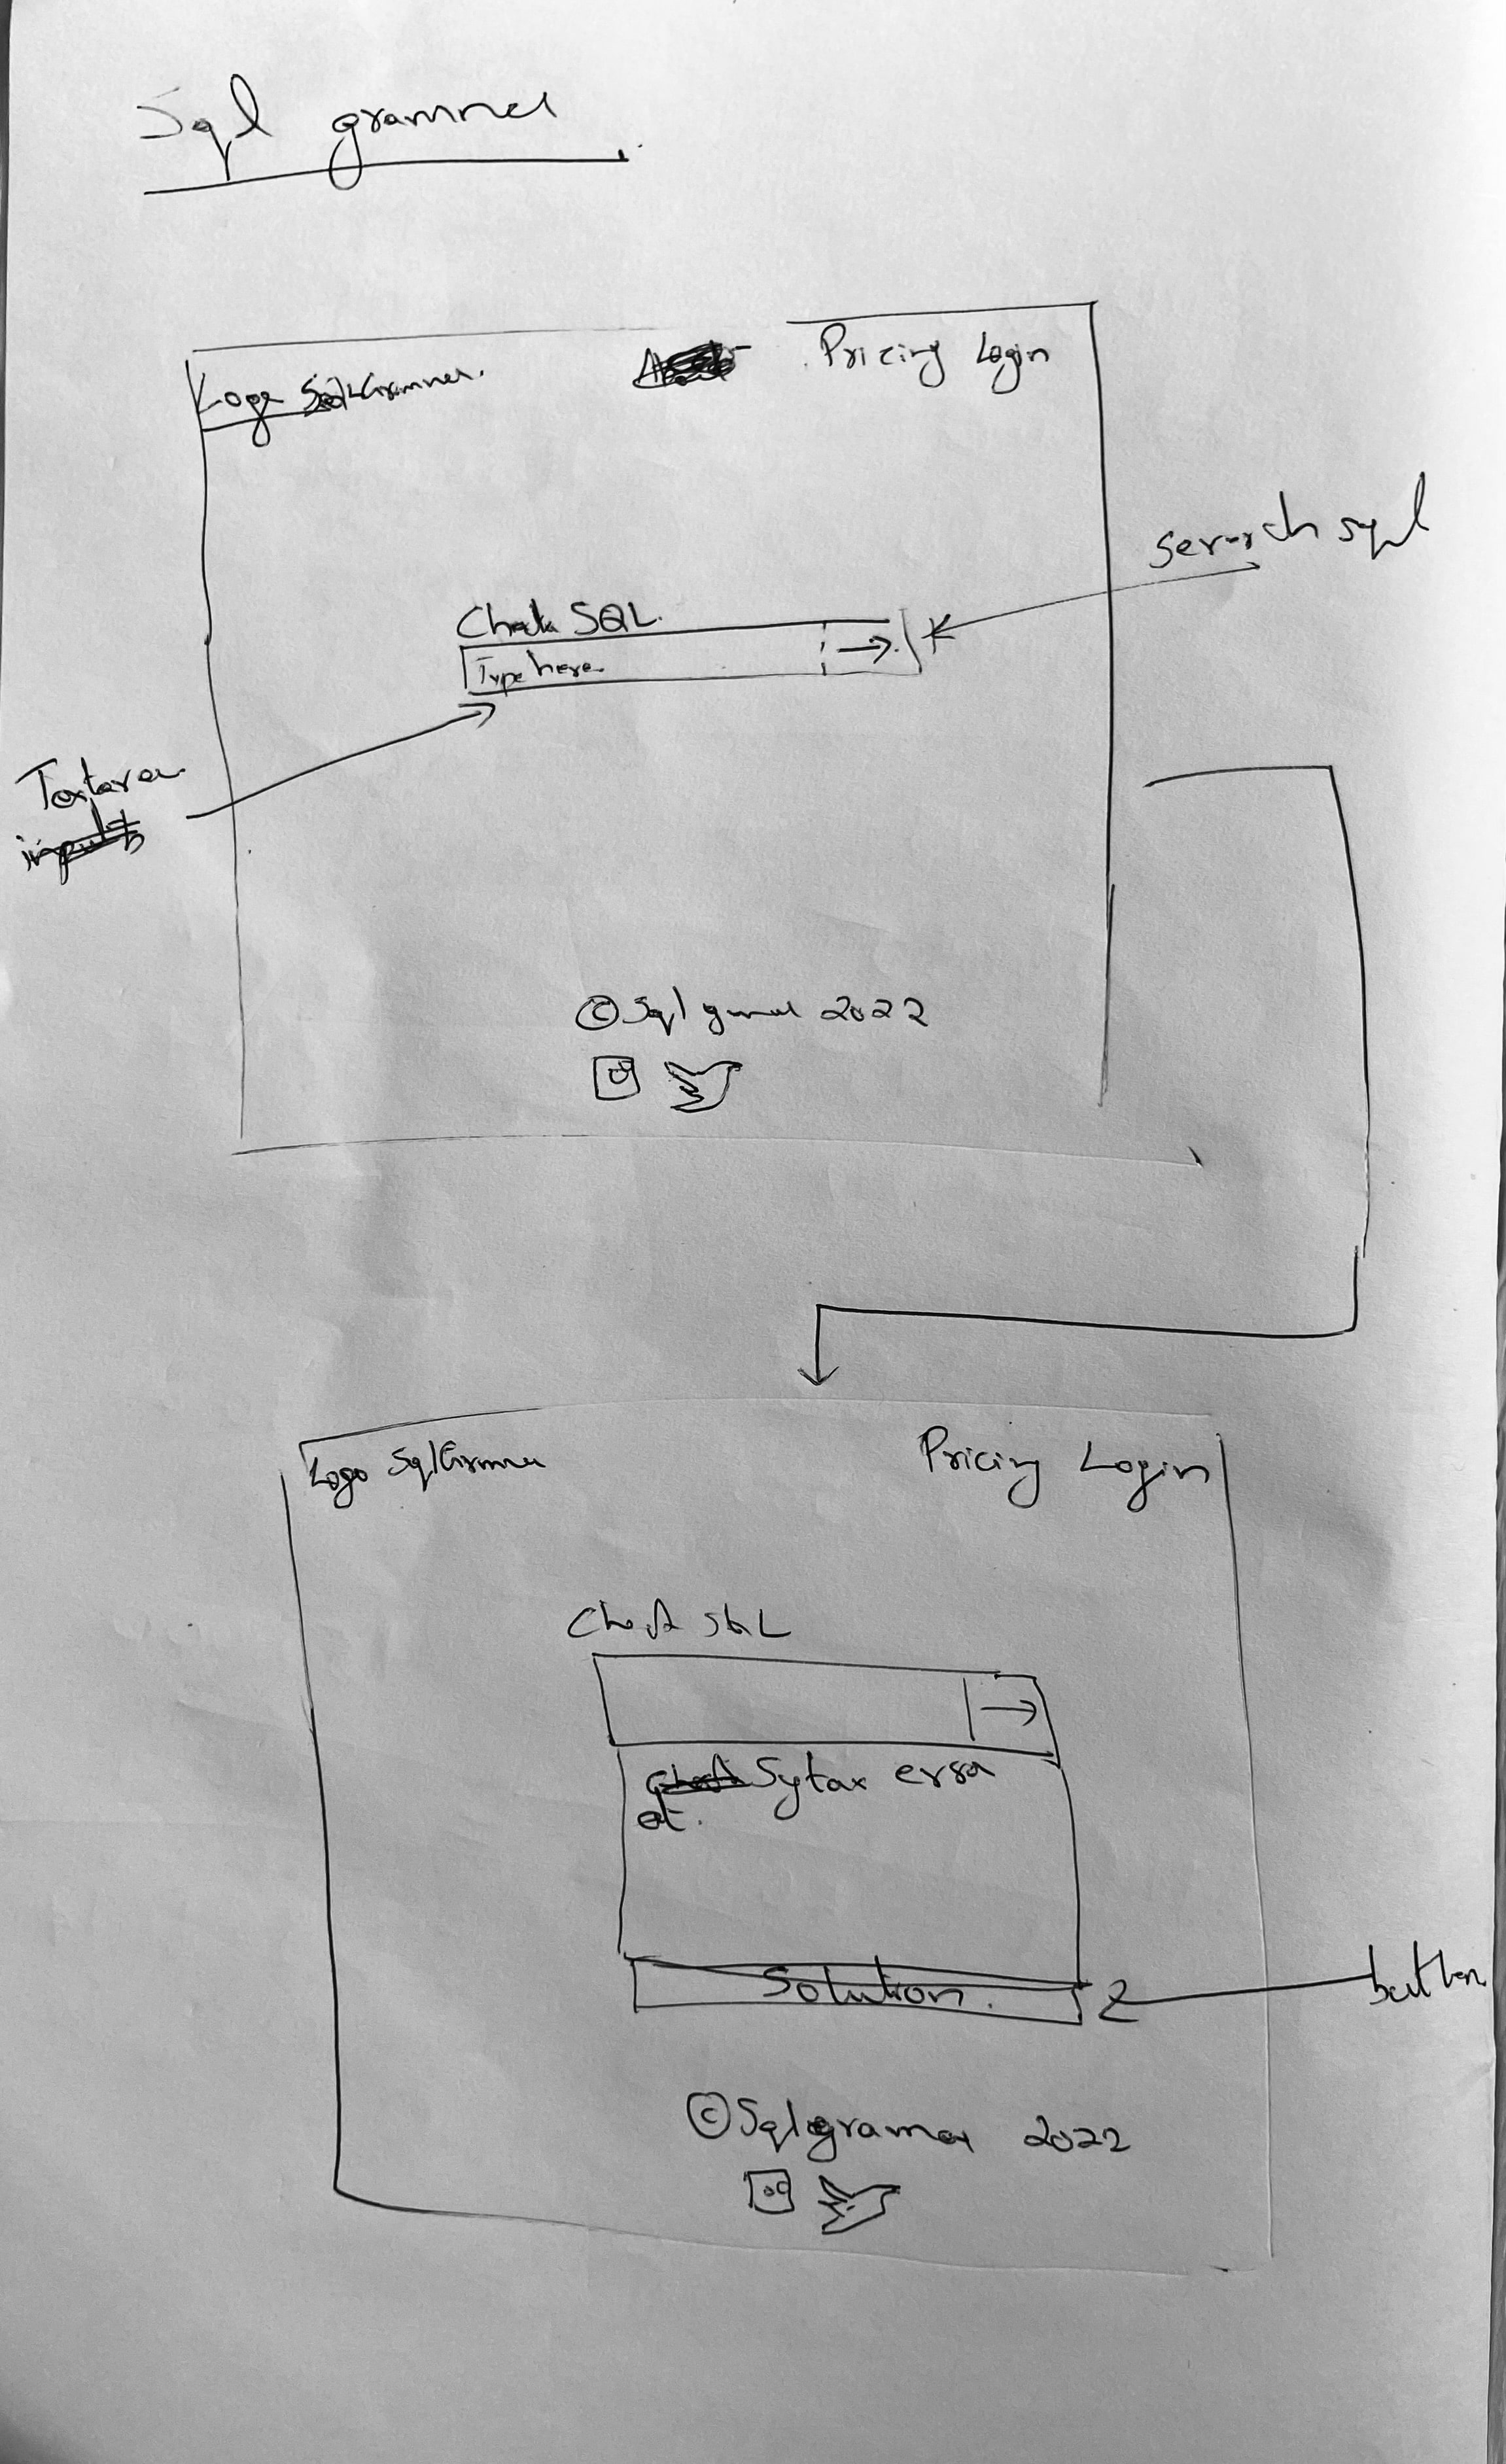 Sql grammer
Logo SqlGrammer.
Pricing Login
search sql
Check SQL.
Type here
Textarea
©Sql 2022
Logo Sql
Pricing Login
Check SQL
Sytax error
at.
Solution.
button
©Sqlgramer 2022